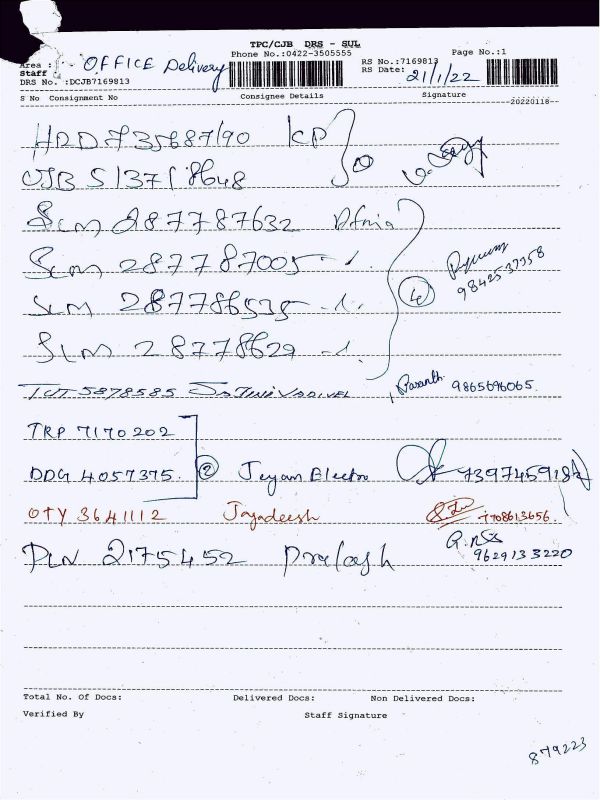 TPC/CJB DRS - SUL
Phone No.:0422-3505555 Page No.:1
Area : - OFFICE Delivery RS No.:7169813
Staff RS Date: 21/1/22
DRS No. :DCJB7169813
S No Consignment No Consignee Details Signature
--20220118--
735687/90 KP
CJB 5137
SLM 287787632
SLM 287787005
SLM 287786535
SLM 28778629
9842537358
TUT 5878585 Prasanth 9865696065
TRP 7170202
DDG 4057375. 2 Jeyam Electro
OTY 3641112 Jagadeesh 7708613656.
PLN 2175452 Prakash 9629133220
Total No. Of Docs: Delivered Docs: Non Delivered Docs:
Verified By Staff Signature
879223